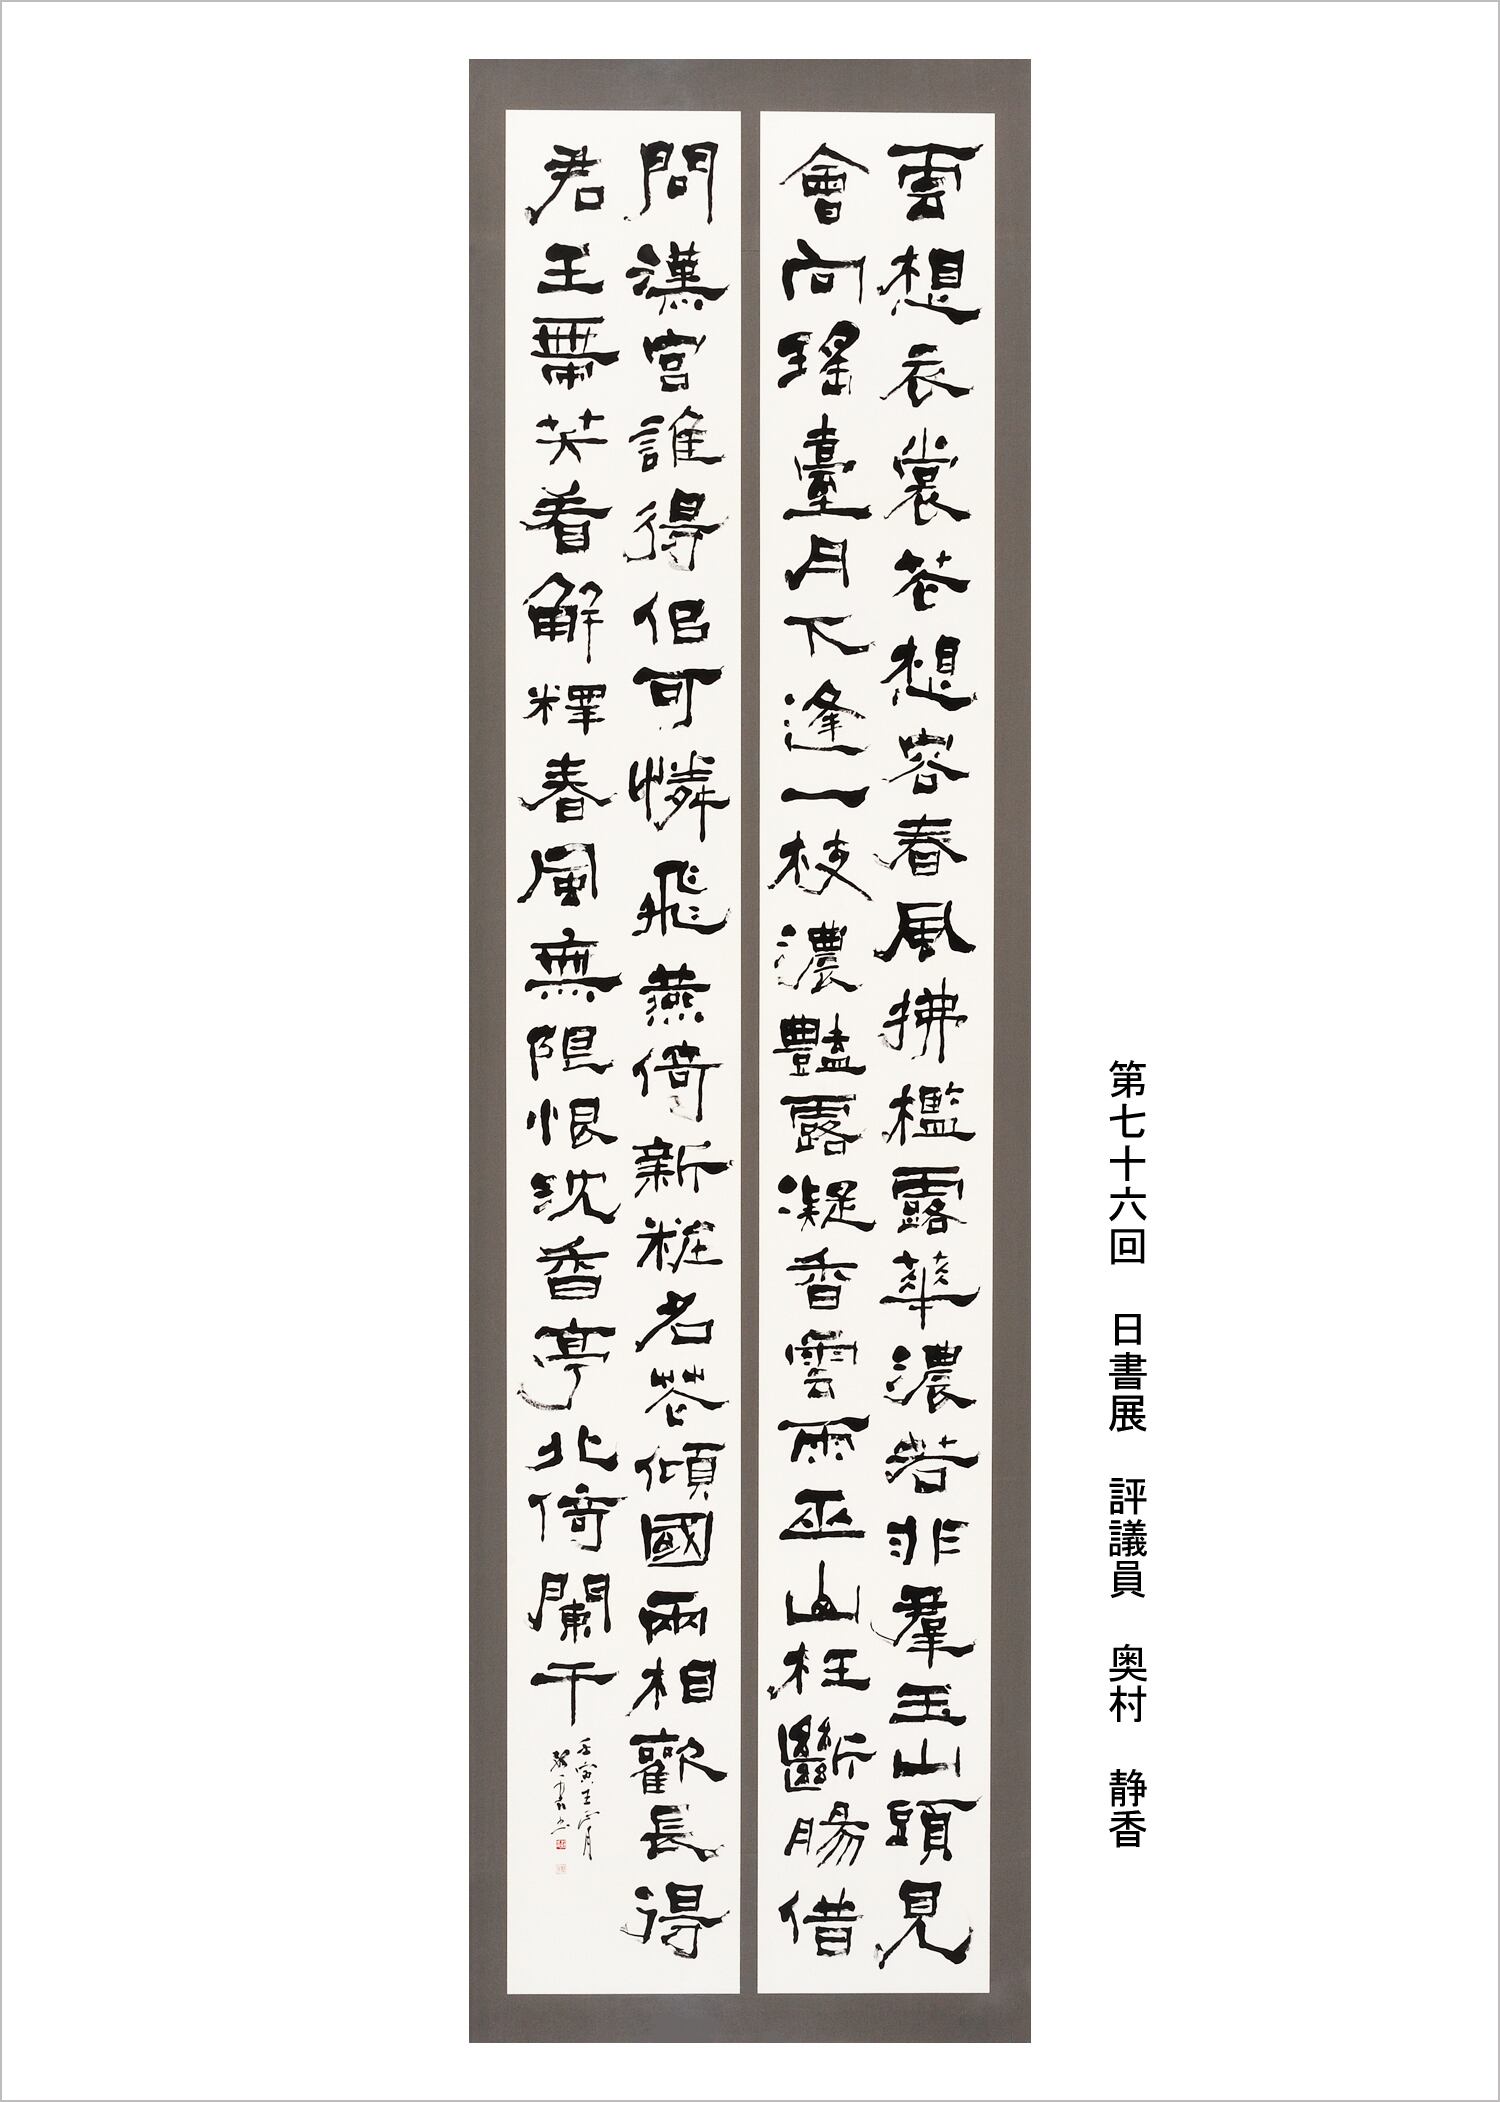 第七十六回 日書展 評議員 奥村 静香
雲想衣裳花想容春風拂檻露華濃若非羣玉山頭見
會向瑤臺月下逢一枝濃豔露凝香雲雨巫山枉斷腸借
問漢宮誰得佀可憐飛燕倚新粧名花傾國兩相歡長得
君王帶笑看解釋春風無限恨沈香亭北倚闌干
壬寅王正月